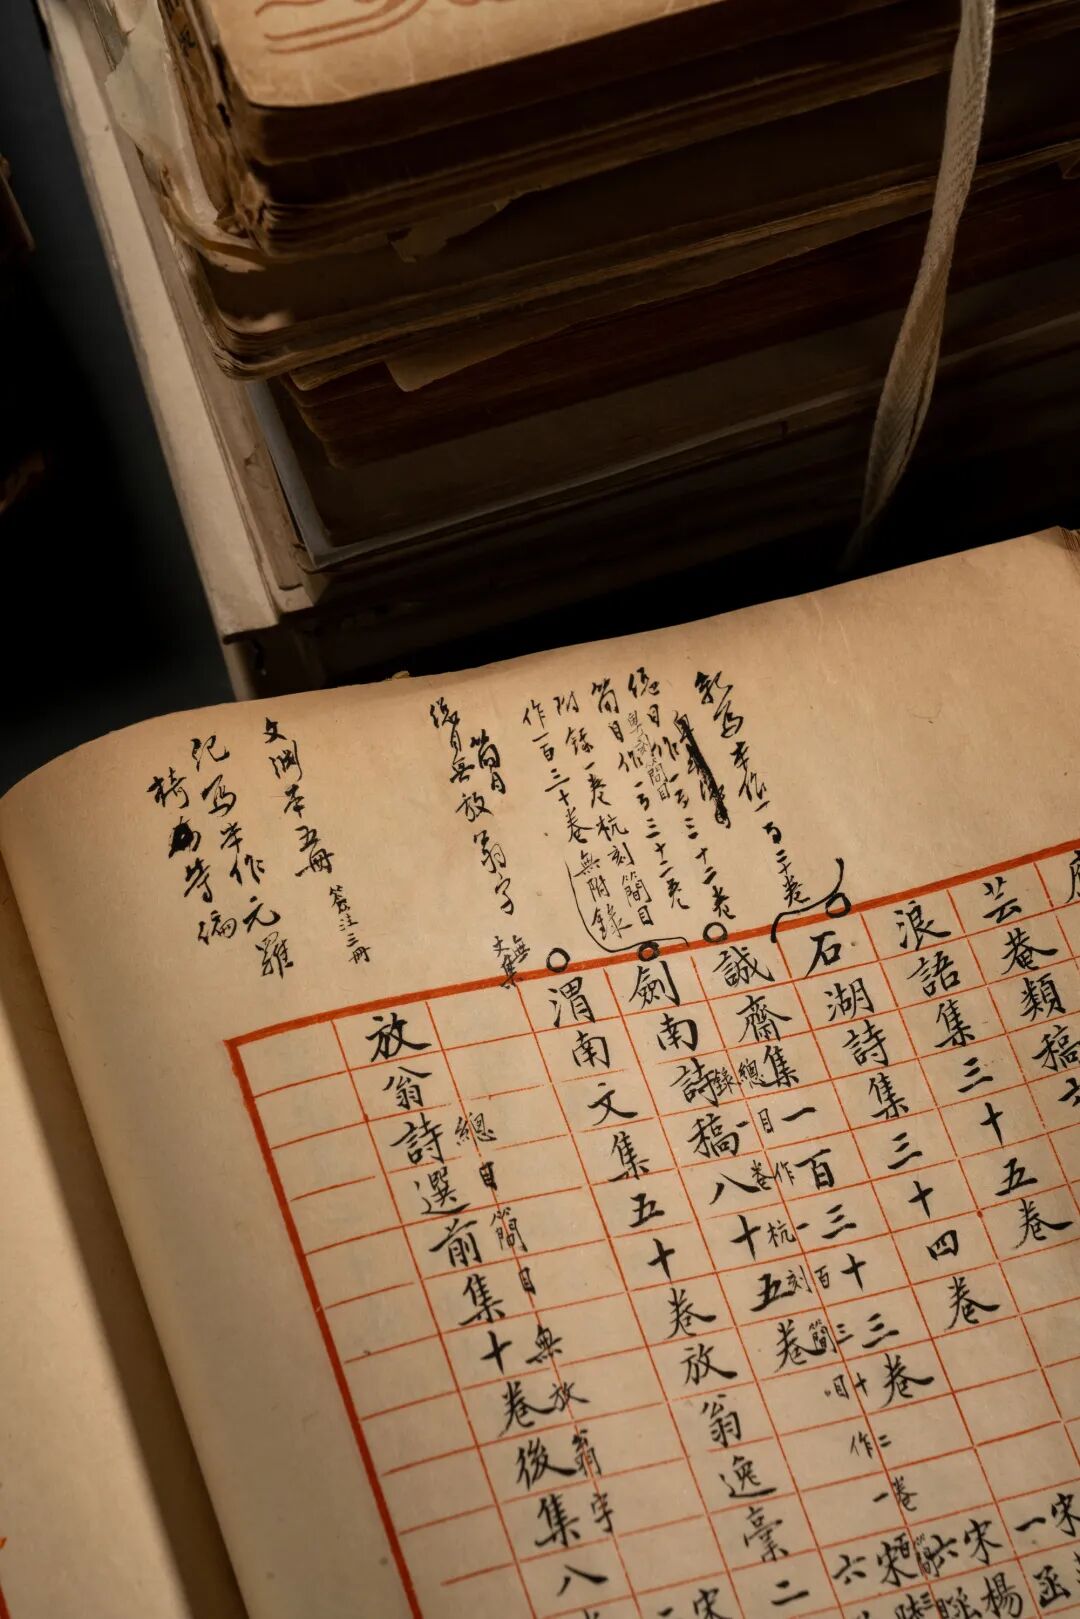 芸菴類稿六
浪語集三十五卷
石湖詩集三十四卷
誠齋集一百三十三卷
總目作一百三十二卷
劍南詩稿八十五卷
錄一卷杭刻簡目作一百三
渭南文集五十卷放翁逸稾二
放翁詩選前集十卷後集八
總目簡目無放翁字
寫本作一百三十卷
總目作一百三十二卷
粵刻簡目
簡目作一百三十二卷
附錄一卷杭刻簡目
作一百三十卷無附錄
簡目
總目無放翁字
無文集
文淵本五冊
簽注三冊
寫本作元羅
椅等編
宋
一函
宋楊
六
宋
六
宋
二